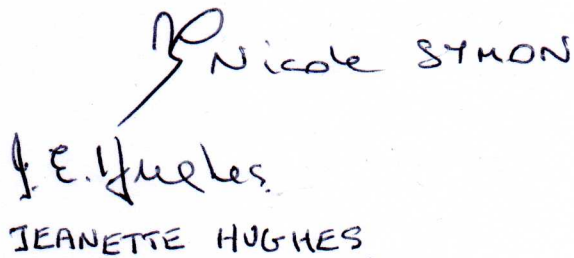 Nicole SYMON
J. E. Hughes
JEANETTE HUGHES